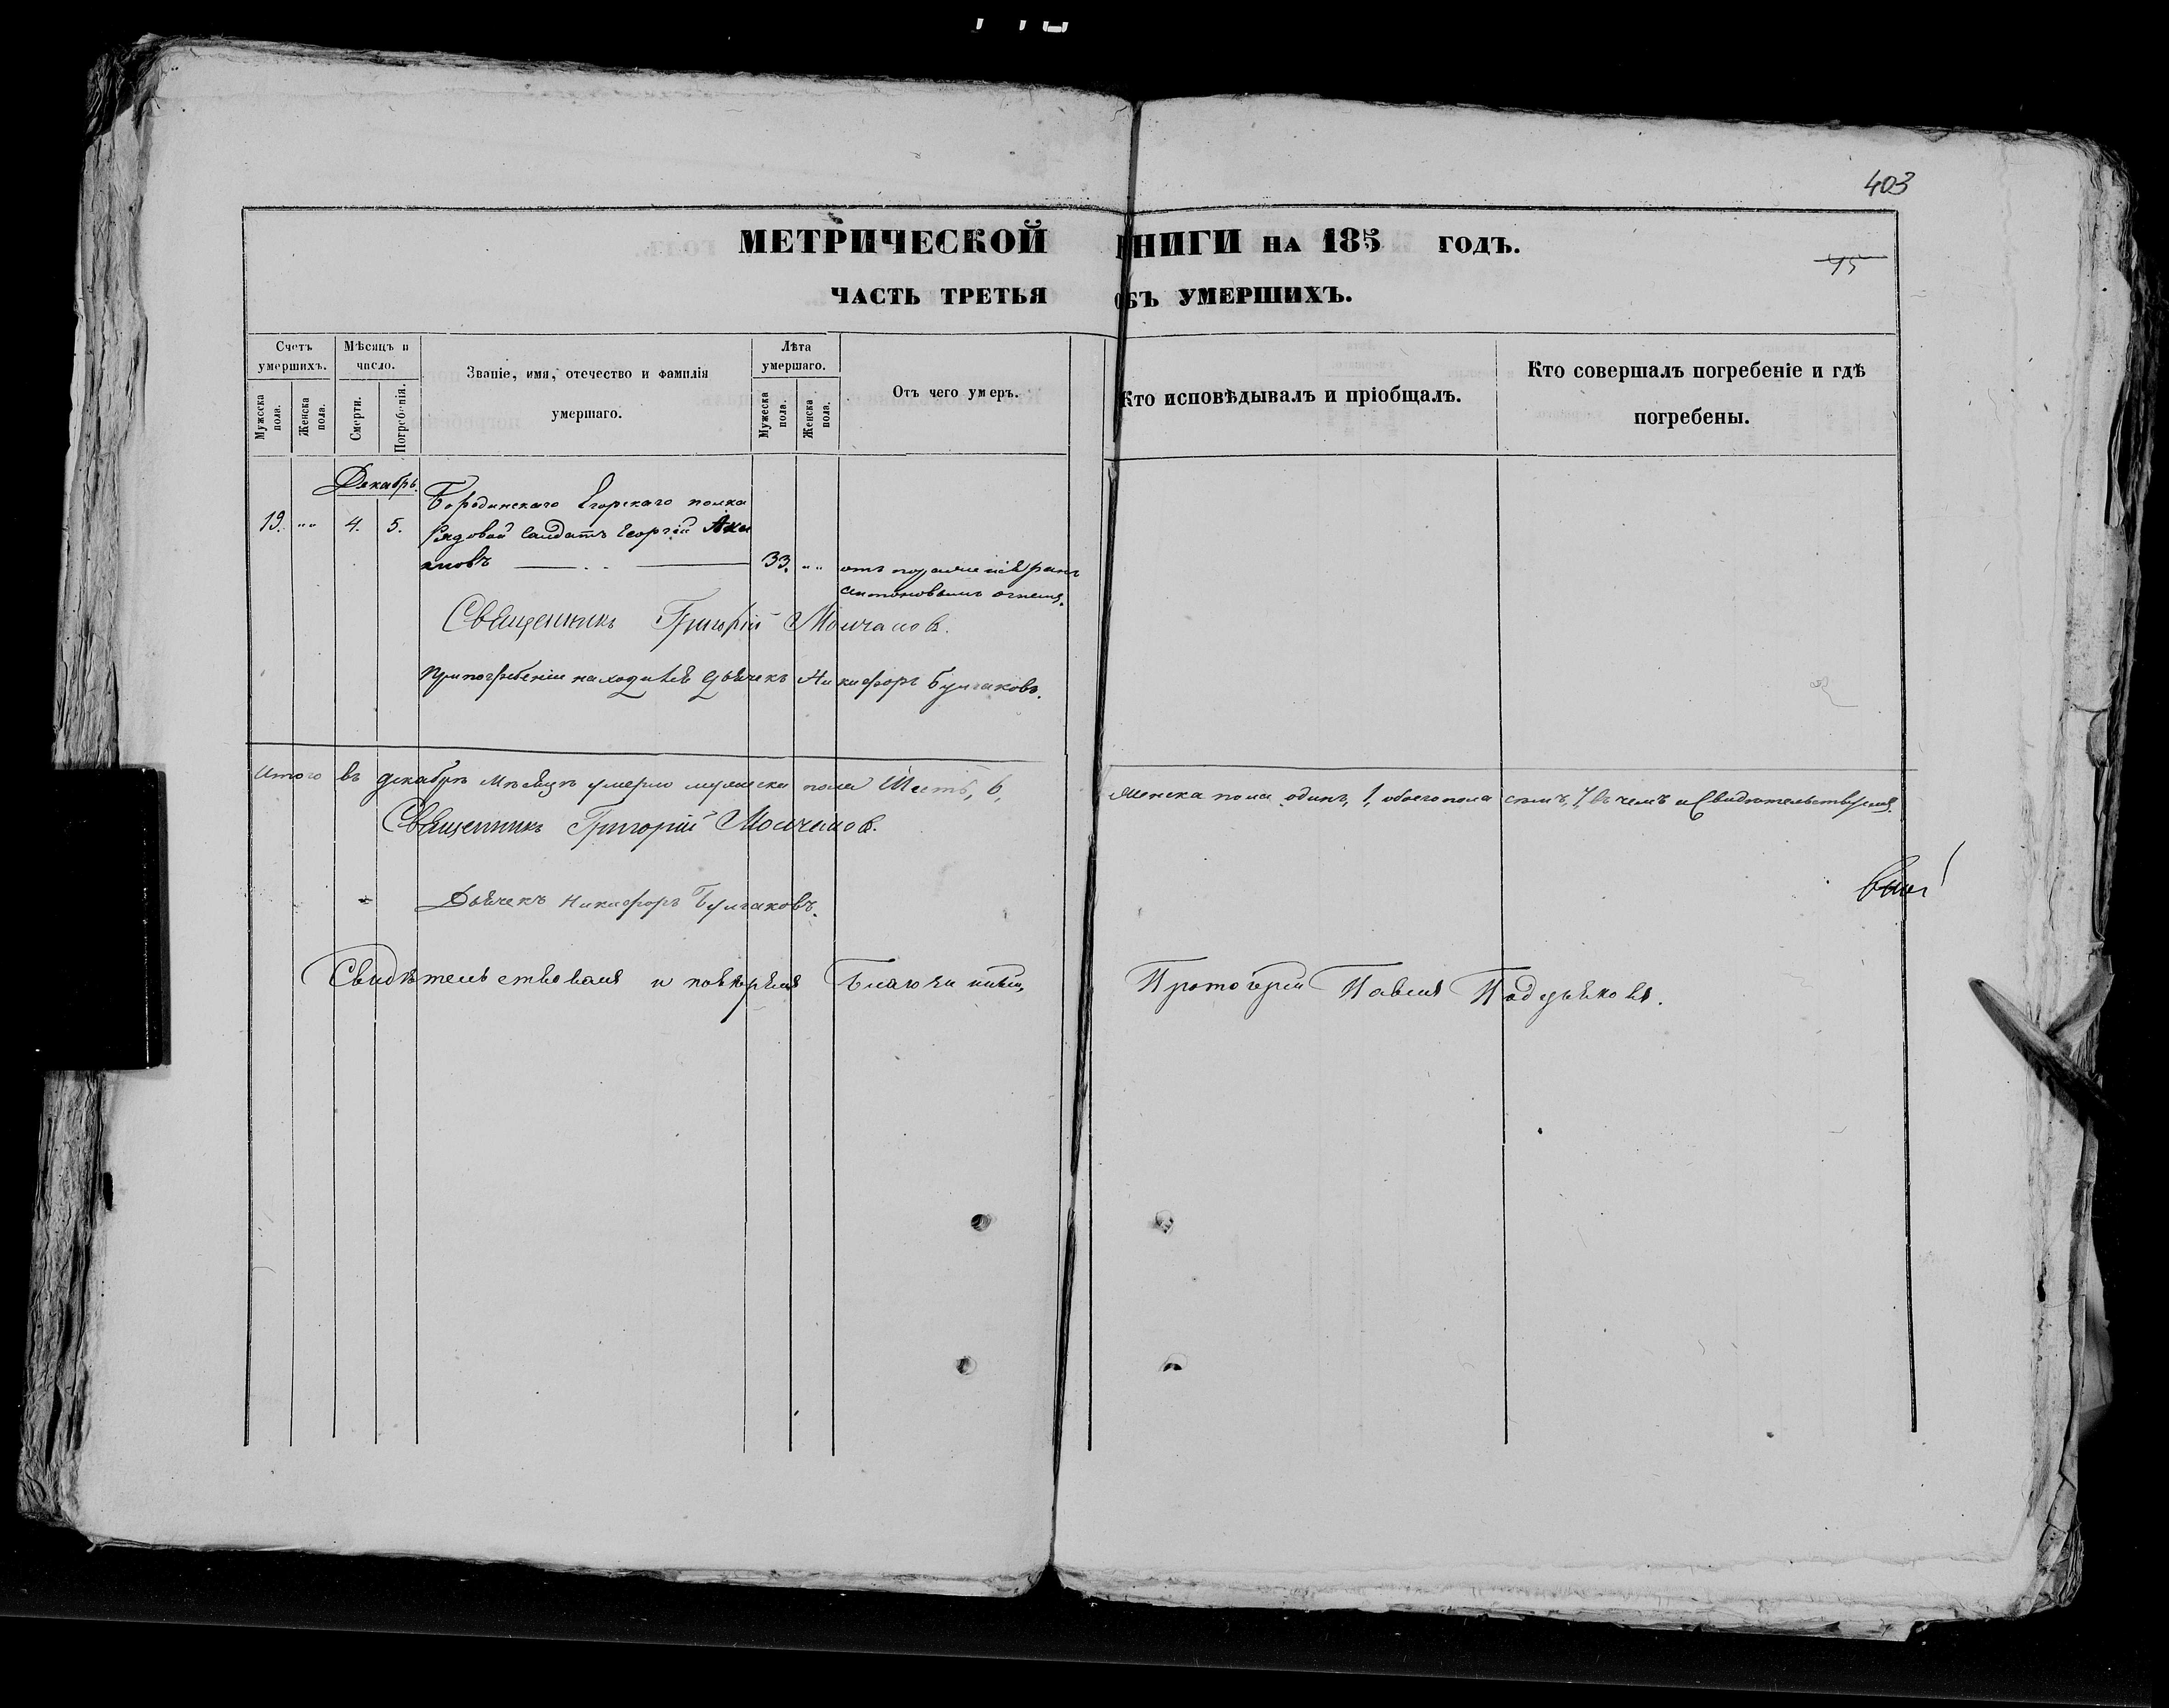 403
МЕТРИЧЕСКОЙ КНИГИ НА 185 ГОДЪ.
45
ЧАСТЬ ТРЕТЬЯ ОБЪ УМЕРШИХЪ.
Счетъ умершихъ.
Мужеска пола.
Женска пола.
Мѣсяцъ и число.
Смерти.
Погребенія.
Званіе, имя, отечество и фамилія умершаго.
Лѣта умершаго.
Мужеска пола.
Женска пола.
Отъ чего умеръ.
Кто исповѣдывалъ и пріобщалъ.
Кто совершалъ погребеніе и гдѣ погребены.
Декабрь.
Бородинскаго Егорскаго полка
19. „„ 4. 5. Рядовой Солдатъ Георгій
33. „„ отъ ранъ
антоновымъ огнемъ.
Священникъ Григорій Молчановъ.
При погребеніи находился Дьячекъ Никифоръ Булгаковъ.
Итого въ декабрѣ мѣсяцѣ умерло мужеска пола Шесть, 6, женска пола одинъ, 1, обоего пола семь, 7, въ чемъ и Свидѣтельствуемъ.
Священникъ Григорій Молчановъ.
Дьячекъ Никифоръ Булгаковъ.
Свидѣтельствовалъ и повѣрялъ Благочинный Протоіерей Павелъ Поддьяковъ.